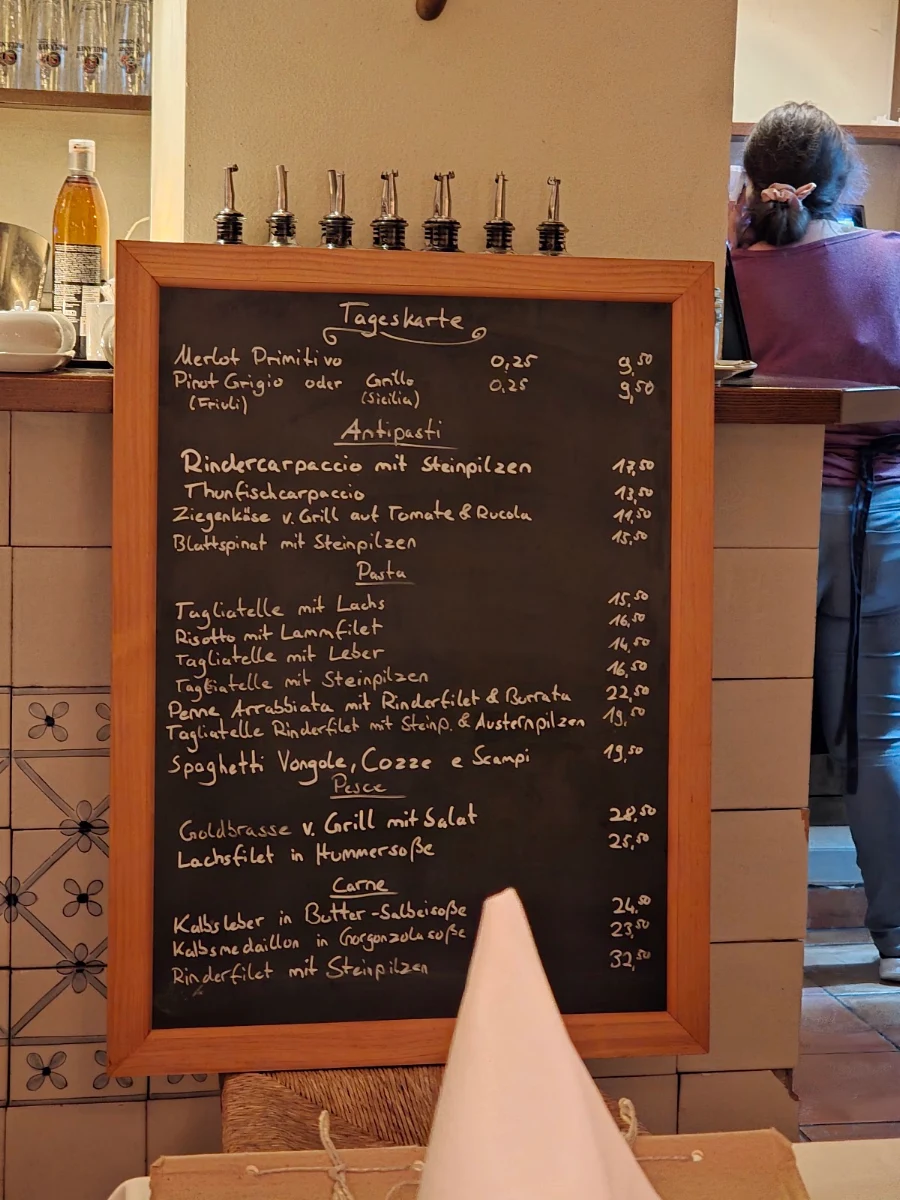 Tageskarte
Merlot Primitivo 0,25 9,50
Pinot Grigio oder Grillo 0,25 9,50
(Friuli) (Sicilia)
Antipasti
Rindercarpaccio mit Steinpilzen 17,50
Thunfischcarpaccio 13,50
Ziegenkäse v. Grill auf Tomate & Rucola 11,50
Blattspinat mit Steinpilzen 15,50
Pasta
Tagliatelle mit Lachs 15,50
Risotto mit Lammfilet 16,50
Tagliatelle mit Leber 14,50
Tagliatelle mit Steinpilzen 16,50
Penne Arrabbiata mit Rinderfilet & Burrata 22,50
Tagliatelle Rinderfilet mit Steinp. & Austernpilzen 19,50
Spaghetti Vongole, Cozze e Scampi 19,50
Pesce
Goldbrasse v. Grill mit Salat 28,50
Lachsfilet in Hummersoße 25,50
Carne
Kalbsleber in Butter-Salbeisoße 24,50
Kalbsmedaillon in Gorgonzolasoße 23,50
Rinderfilet mit Steinpilzen 32,50